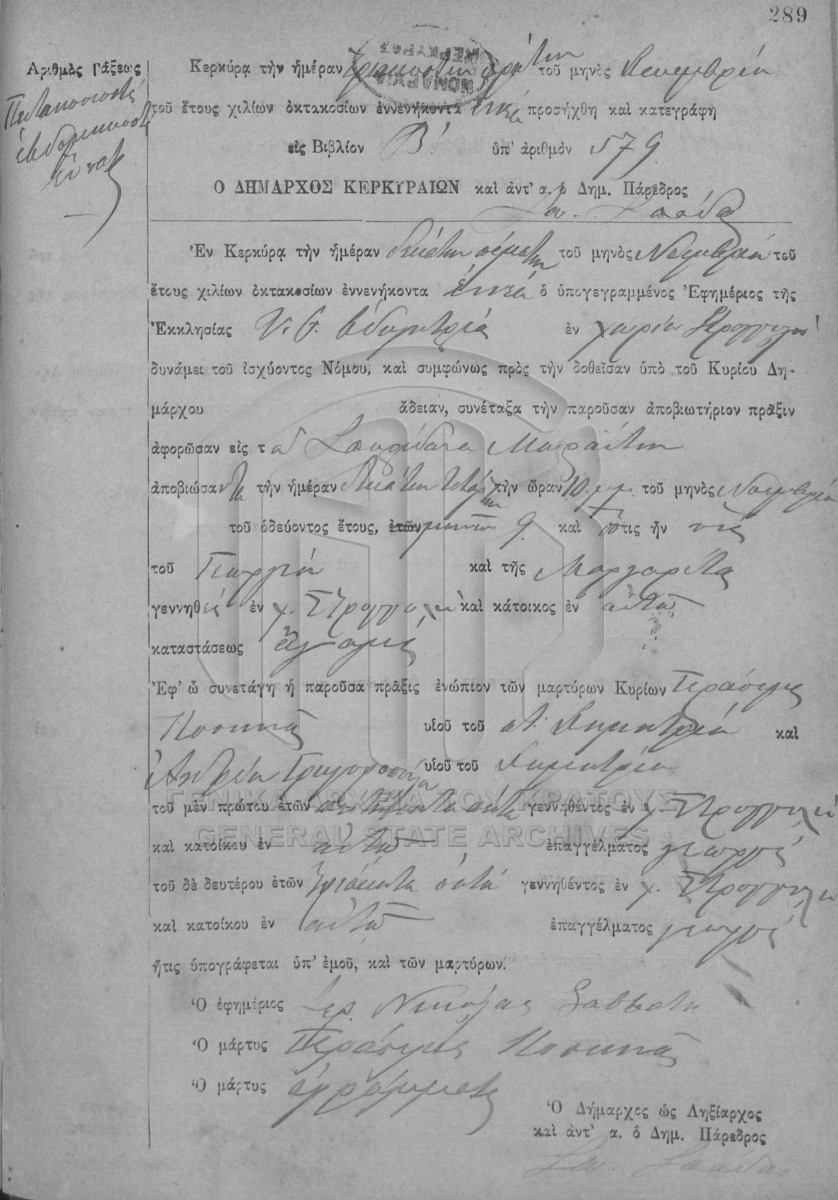 289
Ἀριθμὸς Τάξεως
Πεντακοσιοστὴ
ἑβδομηκοστὴ
ἐννάτη
Κερκύρα τὴν ἡμέραν τριακοστὴν πρώτην τοῦ μηνὸς Δεκεμβρίου
τοῦ ἔτους χιλίων ὀκτακοσίων ἐννενήκοντα ἐννέα προσήχθη καὶ κατεγράφη
εἰς Βιβλίον Β' ὑπ' ἀριθμὸν 579
Ο ΔΗΜΑΡΧΟΣ ΚΕΡΚΥΡΑΙΩΝ καὶ ἀντ' α. ὁ Δημ. Πάρεδρος
Ἐν Κερκύρᾳ τὴν ἡμέραν δεκάτην πέμπτην τοῦ μηνὸς Νοεμβρίου τοῦ
ἔτους χιλίων ὀκτακοσίων ἐννενήκοντα ἐννέα ὁ ὑπογεγραμμένος Ἐφημέριος τῆς
Ἐκκλησίας Υ. Θ. Οδηγητρίας ἐν χωρίῳ Στρογγυλῇ
δυνάμει τοῦ ἰσχύοντος Νόμου, καὶ συμφώνως πρὸς τὴν δοθεῖσαν ὑπὸ τοῦ Κυρίου Δη-
μάρχου ἄδειαν, συνέταξα τὴν παροῦσαν ἀποβιωτήριον πρᾶξιν
ἀφορῶσαν εἰς τὸν Σπυρίδωνα
ἀποβιώσαντα τὴν ἡμέραν δεκάτην τετάρτην τὴν ὥραν 10 μ.μ. τοῦ μηνὸς Νοεμβρίου
τοῦ ὁδεύοντος ἔτους, ἐτῶν μηνῶν 9 καὶ ὅστις ἦν υἱὸς
τοῦ Γεωργίου καὶ τῆς Μαργαρίτας
γεννηθεὶς ἐν χ. Στρογγυλῇ καὶ κάτοικος ἐν αὐτῷ
καταστάσεως ἄγαμος
Ἐφ' ᾧ συνετάγη ἡ παροῦσα πρᾶξις ἐνώπιον τῶν μαρτύρων Κυρίων Γεράσιμος
Κοσκινᾶς υἱοῦ τοῦ Δημητρίου καὶ
Ἀνδρέου Γρηγοροπούλου υἱοῦ τοῦ Δημητρίου
τοῦ μὲν πρώτου ἐτῶν ὀκτὼ γεννηθέντος ἐν χ. Στρογγυλῇ
καὶ κατοίκου ἐν αὐτῷ ἐπαγγέλματος γεωργὸς
τοῦ δὲ δευτέρου ἐτῶν τριάκοντα ὀκτὼ γεννηθέντος ἐν χ. Στρογγυλῇ
καὶ κατοίκου ἐν αὐτῷ ἐπαγγέλματος γεωργὸς
ἥτις ὑπογράφεται ὑπ' ἐμοῦ, καὶ τῶν μαρτύρων.
Ὁ ἐφημέριος Ἱερ. Νικόλαος
Ὁ μάρτυς Γεράσιμος Κοσκινᾶς
Ὁ μάρτυς ἀγράμματος
Ὁ Δήμαρχος ὡς Ληξίαρχος
καὶ ἀντ' α. ὁ Δημ. Πάρεδρος
ΓΕΝΙΚΑ ΑΡΧΕΙΑ ΤΟΥ ΚΡΑΤΟΥΣ
GENERAL STATE ARCHIVES